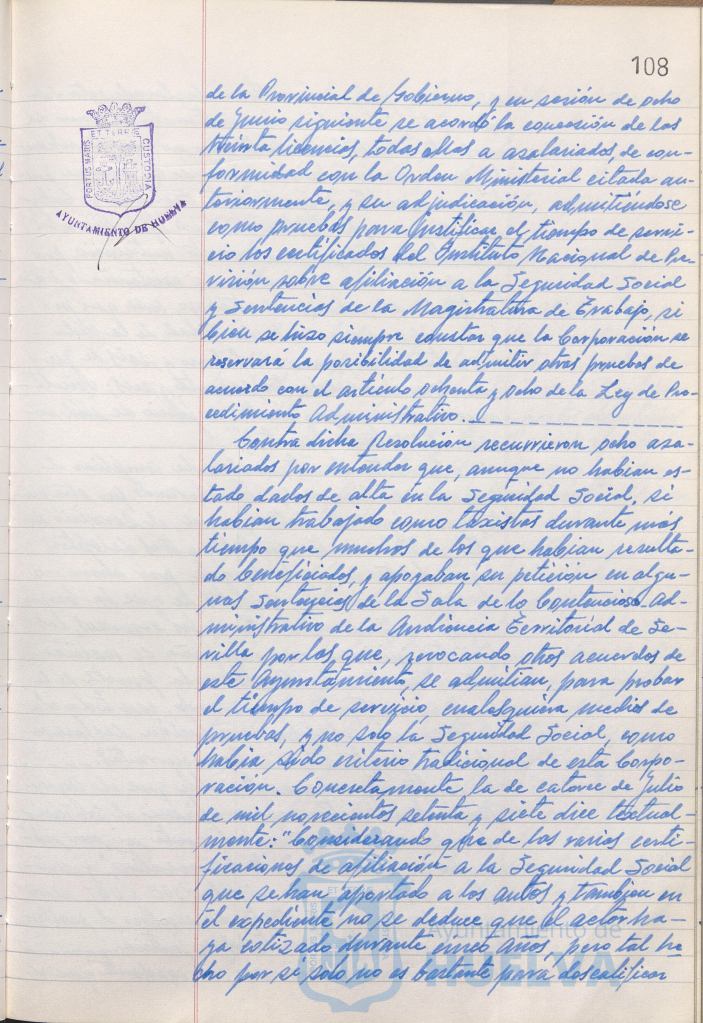 108
PORTUS MARIS ET TERRE CUSTODIA
AYUNTAMIENTO DE HUELVA
de la Provincial de Gobierno, y en sesión de ocho
de Junio siguiente se acordó la concesión de las
treinta licencias, todas ellas a asalariados, de con-
formidad con la Orden Ministerial citada an-
teriormente, y su adjudicación, admitiendose
como pruebas para justificar el tiempo de servi-
cio los certificados del Instituto Nacional de Pre-
visión sobre afiliación a la Seguridad Social
y Sentencias de la Magistratura de Trabajo, si
bien se hizo siempre constar que la Corporación se
reservará la posibilidad de admitir otras pruebas de
acuerdo con el artículo ochenta y ocho de la Ley de Pro-
cedimiento Administrativo.
Contra dicha Resolución recurrieron ocho asa-
lariados por entender que, aunque no habian es-
tado dados de alta en la Seguridad Social, si
habian trabajado como taxistas durante más
tiempo que muchos de los que habian resulta-
do beneficiados, y apoyaban su petición en algu-
nas Sentencias de la Sala de lo Contencioso Ad-
ministrativo de la Audiencia Territorial de Se-
villa por las que, revocando otros acuerdos de
este Ayuntamiento, se admitian, para probar
el tiempo de servicio, cualesquiera medios de
pruebas, y no solo la Seguridad Social, como
habia sido criterio tradicional de esta Corpo-
ración. Concretamente la de catorce de Julio
de mil novecientos setenta y siete dice textual-
mente: "Considerando que de las varias certi-
ficaciones de afiliación a la Seguridad Social
que se han aportado a los autos y tambien en
el expediente no se deduce que el actor ha-
ya cotizado durante cinco años, pero tal he-
cho por si solo no es bastante para descalificar
Ayuntamiento de
HUELVA